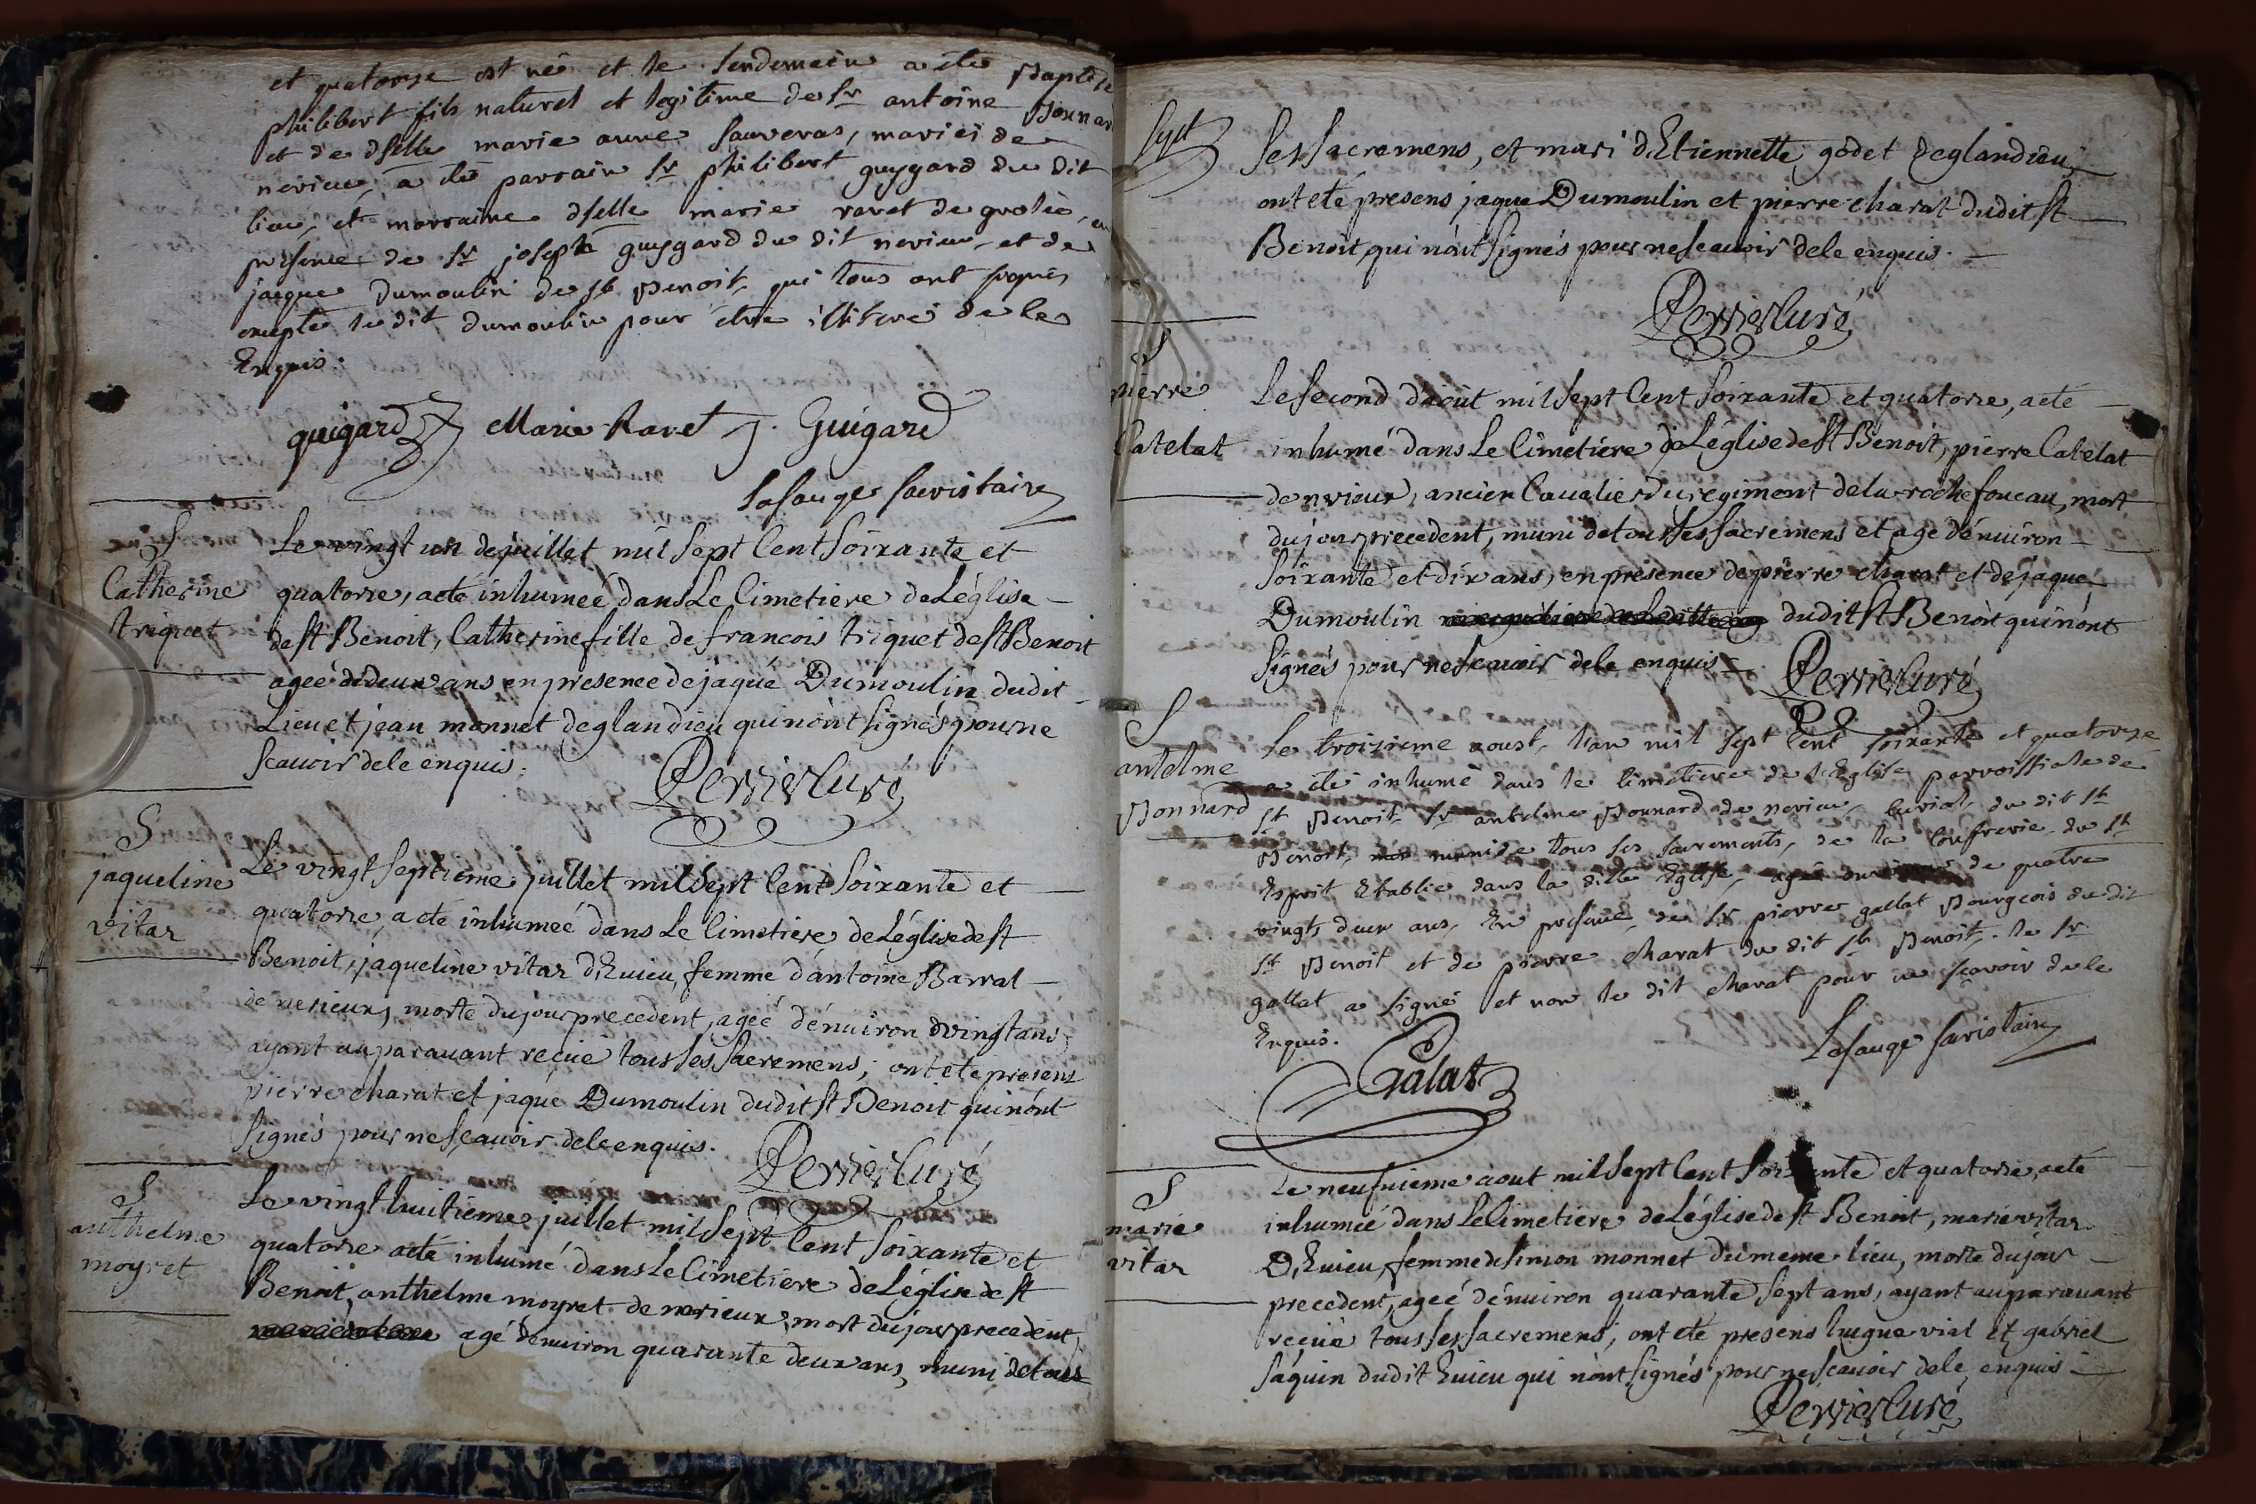 et quatorze est né et le lendemain a été Baptisé
philibert fils naturel et legitime de sr antoine Bonnar
et de dselle marie anne sauveras, mariés de
nerieu, a été parrain sr philibert guygard du dit
lieu, et marraine dselle marie ravet de grolée, en
presence de sr joseph guygard du dit nerieu, et de
jacque dumoulin de st Benoit, qui tous ont signés
excepté le dit dumoulin pour être illitéré de ce
Enquis.
guigard Marie Ravet J. Guigard
Lasauge sacristain
S
Catherine
triquet
Le vingt un de juillet mil sept Cent soixante et
quatorze, a eté inhumeé dans Le Cimetiere de L'église
de st Benoit, Catherine fille de francois triquet de st Benoit
ageé de deux ans en presence de jaque Dumoulin dudit
Lieu et jean monnet de glandieu qui n'ont signés pour ne
scavoir de ce enquis.
Perrier Curé
S
jaqueline
vitar
Le vingt septieme juillet mil sept Cent soixante et
quatorze, a eté inhumeé dans Le Cimetiere de L'église de st
Benoit, jaqueline vitar d'Evieu, femme d'antoine Barral
de nerieux, morte du jour precedent, ageé d'environ vingt ans
ayant auparavant recue tous ses sacremens; ont eté presens
pierre charat et jaque Dumoulin dudit st Benoit qui n'ont
signés pour ne scavoir de ce enquis.
Perrier Curé
S
anthelme
moyret
Le vingt huitieme juillet mil sept Cent soixante et
quatorze a eté inhumé dans Le Cimetiere de L'église de st
Benoit, anthelme moyret de nerieux, mort du jour precedent,
agé d'environ quarante deux ans, muni de tous
ses sacremens, et mari d'Etiennette godet de glandieu;
ont eté presens jaque Dumoulin et pierre charat dudit st
Benoit qui n'ont signés pour ne scavoir de ce enquis.
Perrier Curé
S
pierre
Catelat
Le second d'aout mil sept Cent soixante et quatorze, a eté
inhumé dans Le Cimetiere de L'église de st Benoit, pierre Catelat
de nrieux, ancien Cavalier du regiment de la rochefoucau, mort
du jour precedent, muni de tous ses sacremens et agé d'environ
soixante et dix ans, en presence de pierre charat et de jaque
Dumoulin dudit st Benoit qui n'ont
signés pour ne scavoir de ce enquis
Perrier Curé
S
antelme
Bonnard
Le troizieme aoust, l'an mil sept Cent soixante et quatorze
a été inhumé dans le Cimetiere de l'Eglise parroissiale de
st Benoit sr antelme Bonnard de nerieu, Curial du dit st
Benoit, muni de tous ses sacrements, de la Confrerie du st
Esprit Etablie dans la dite Eglise, agé de quatre
vingts deux ans, En presence, de sr pierre gallat Bourgeois du dit
st Benoit et de pierre charat du dit st Benoit, le sr
gallat a signé et non le dit charat pour ne scavoir de ce
Enquis.
Galat
Lasauge sacristain
S
marie
vitar
Le neufvieme aout mil sept Cent soixante et quatorze, a eté
inhumeé dans Le Cimetiere de L'église de st Benoit, marie vitar
D'Evieu, femme de simon monnet du meme lieu, morte du jour
precedent, ageé d'environ quarante sept ans, ayant auparavant
recue tous ses sacremens; ont eté presens hugue vial et gabriel
saquin dudit Evieu qui n'ont signés pour ne scavoir de ce enquis
Perrier Curé